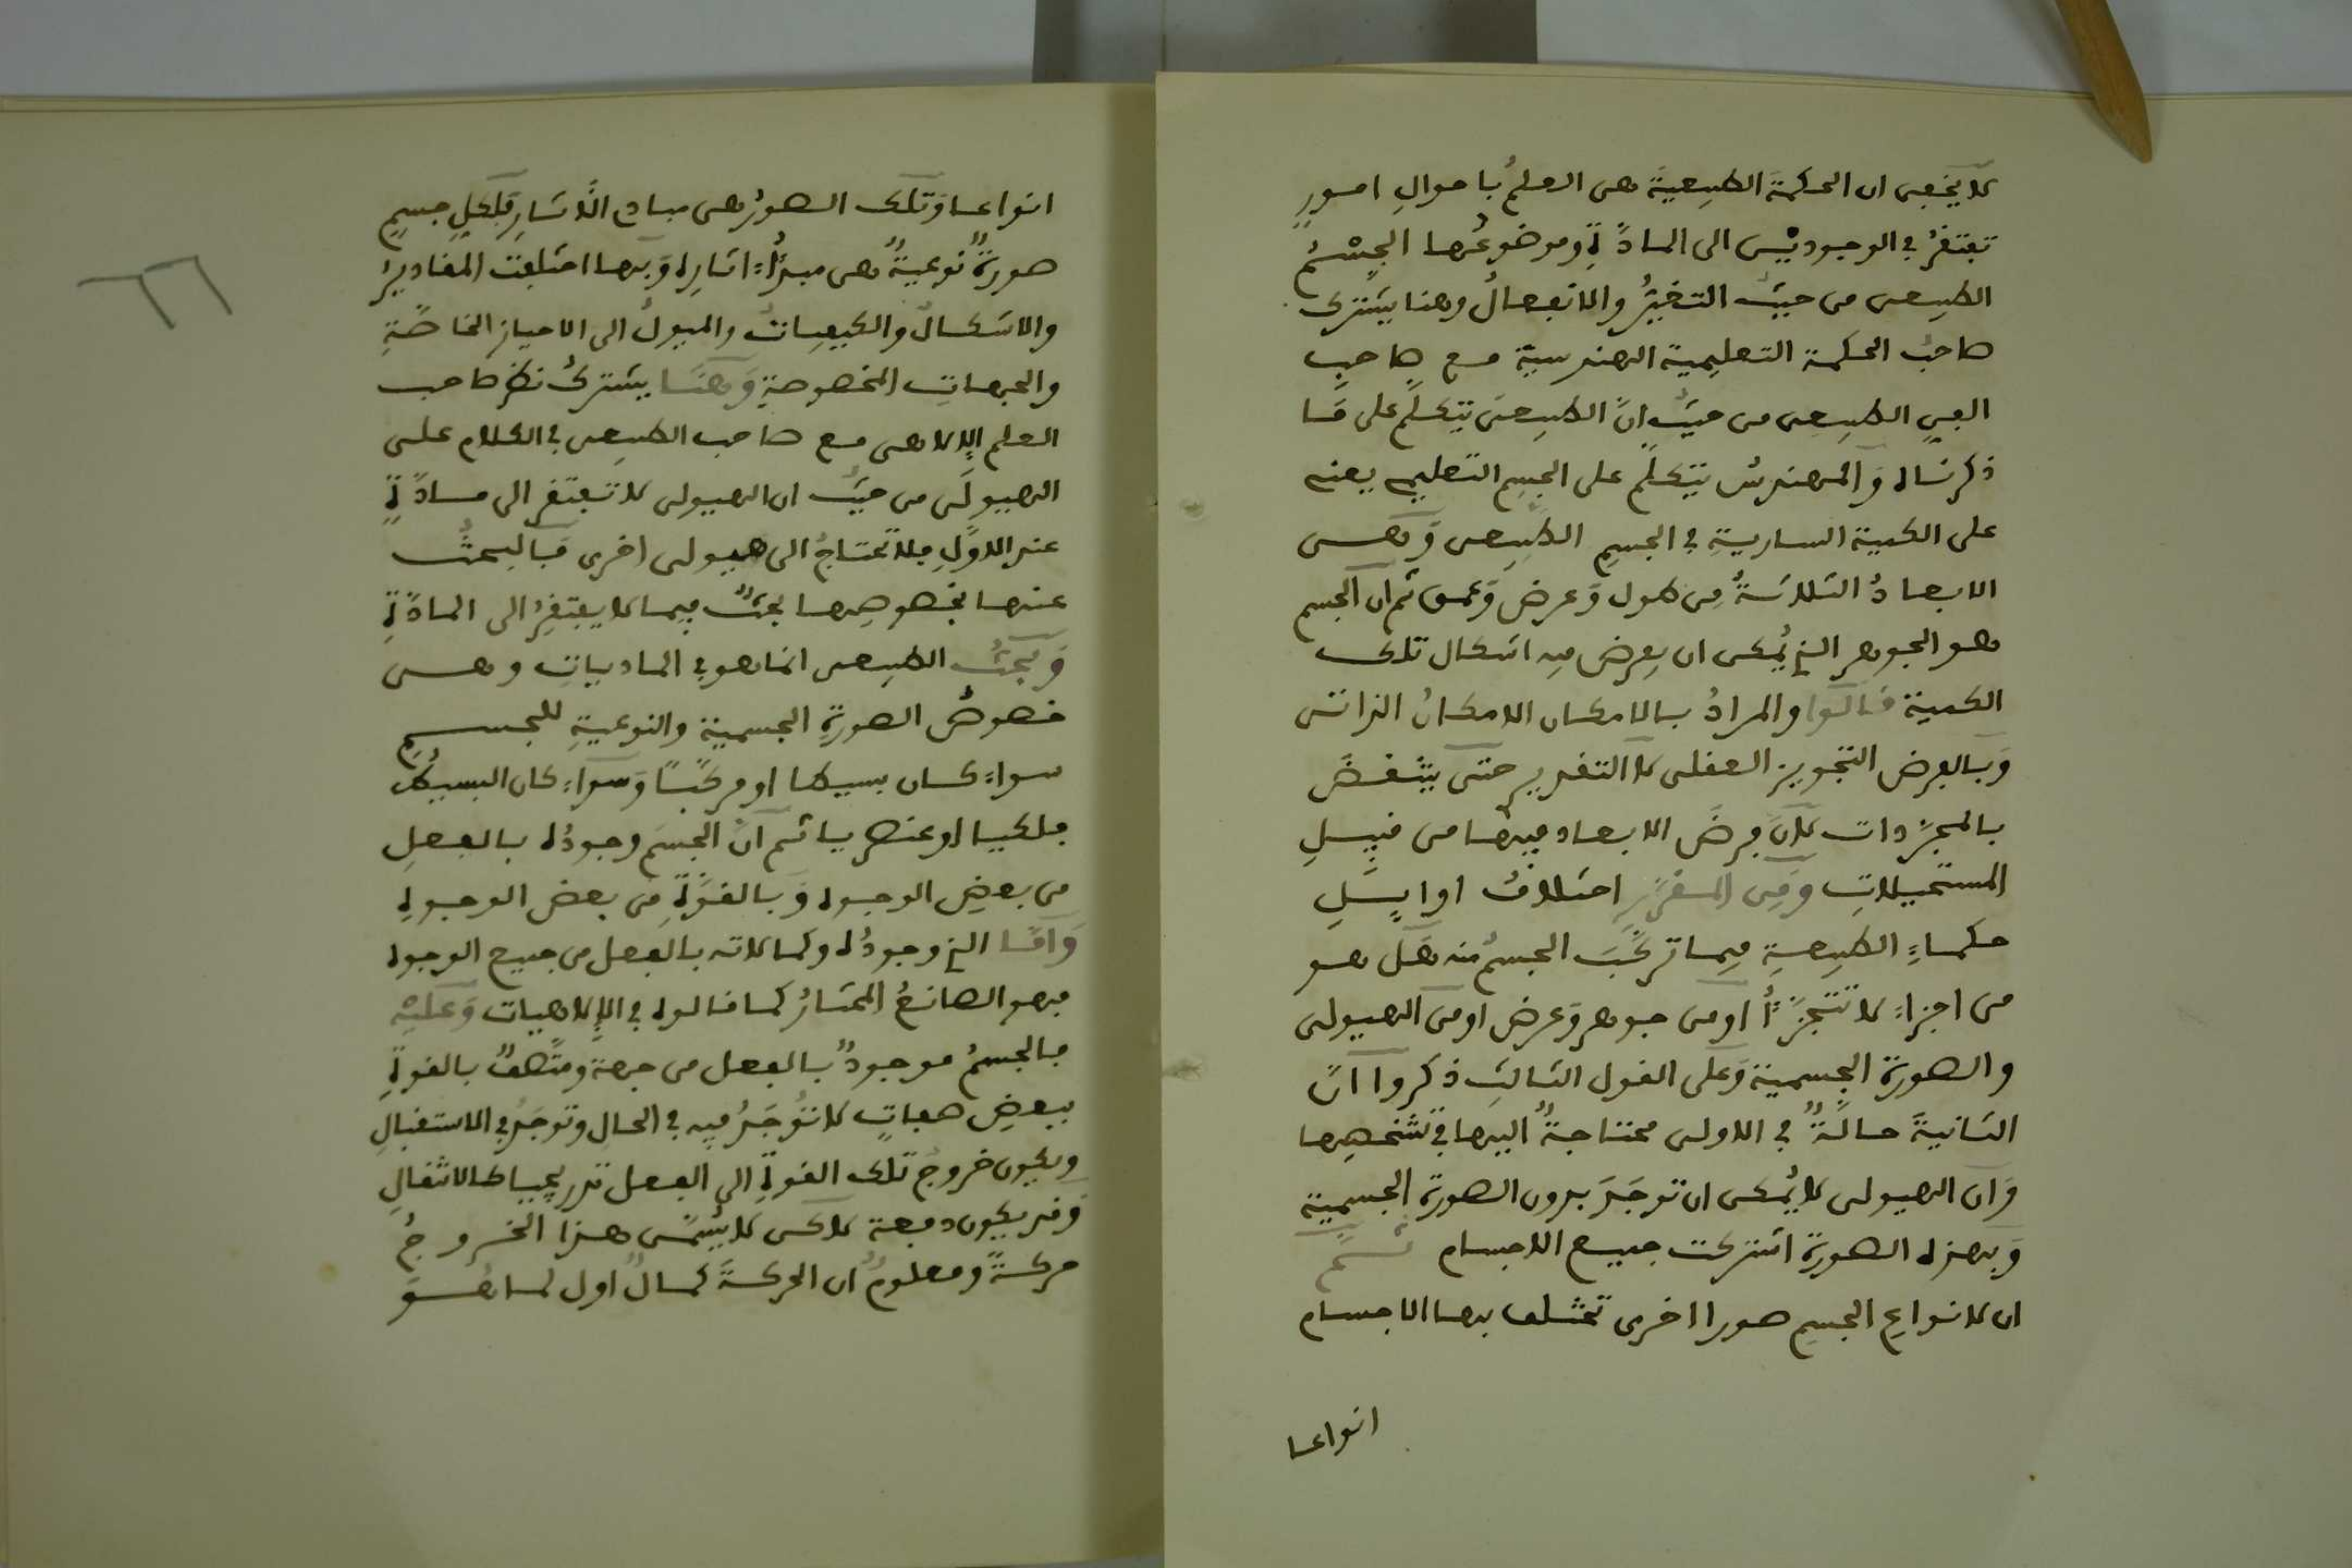 لا يخفى ان الحكمة الطبيعية هي العلمُ باحوالِ امورٍ
تفتقرُ في الوجوديْن الى المادّةِ وموضوعُها الجِسْمُ
الطبيعي من حيثُ التغيّرُ والانفعالُ وهنا يشترك
صاحبُ الحكمة التعليمية الهندسيّة مع صاحب
الفنِ الطبيعي من حيثُ انّ الطبيعيَ يتكلّم على مَا
ذكرناه وَالمهندسُ يتكلّم على الجسمِ التعليمي يعني
على الكمية الساريةِ في الجسمِ الطبيعي وَهي
الابعادُ الثلاثةُ مِن طول وَعرض وَعمق ثم ان الجسم
هو الجوهر الذي يُمكن ان يفرض فيه اشكال تلك
الكمية قالوا والمرادُ بالامكان الامكانُ الذاتي
وَبالفرض التجويز العقلي لا التقدير حتى ينتقضَ
بالمجرّدات لانّ فرضَ الابعاد فيها من قبيلِ
المستحيلاتِ وَمِن المقرّرِ اختلافُ اوايلِ
حكماءِ الطبيعةِ فيما تركّبَ الجسمُ منه هَل هو
من اجزاءٍ لا تتجزّأُ او من جوهر وَعرض او من الهيولى
والصورة الجسمية وَعلى القول الثالث ذكروا انّ
الثانيةَ حالّةٌ في الاولى محتاجةٌ اليها في تشخصِها
وَان الهيولى لا يُمكن ان توجَدَ بدون الصورة الجسمية
وَبهذه الصورة اشتركت جميع الاجسام ثم
ان لانواعِ الجسمِ صورا اخرى تختلف بها الاجسام
انواعا
انواعا وَتلك الصورُ هي مبادي الآثارِ فلكلِ جسمٍ
صورةٌ نوعيةٌ هي مبدأُ اثارِه وَبها اختلفت المقاديرُ
والاشكالُ والكيفياتُ والميولُ الى الاحياز الخاصّةِ
والجهاتِ المخصوصةِ وَهنَا يشتركُ نظر صاحب
العلم الإلاهي مع صاحب الطبيعي في الكلام على
الهيولَى من حيثُ ان الهيولى لا تفتقر الى مادّةٍ
عند الاوّلِ فلا تحتاجُ الى هيولى اخرى فَالبحثُ
عنها بخصوصِها بحثٌ فيما لا يفتقِرُ الى المادّةِ
وَبحثُ الطبيعي انما هو في الماديات وهي
خصوصُ الصورةِ الجسمية والنوعيةِ للجسمِ
سواءٌ كان بسيطا او مركّبًا وَسواءٌ كان البسيطُ
فلكيا او عنصريا ثم انّ الجسمَ وجودُه بالفعلِ
من بعضِ الوجوه وَبالقوّةِ مِن بعض الوجوهِ
وَامّا الذي وجودُه وكمالاته بالفعل من جميع الوجوه
فهو الصانعُ المختارُ كما قالوه في الإلاهيات وَعليْه
فالجسمُ موجودٌ بالفعل من جهة ومتّصفٌ بالقوةِ
ببعضِ صفاتٍ لا تُوجَدُ فيه في الحال وتوجَدُ في الاستقبالِ
ويكون خروجُ تلك القوةِ الى الفعل تدريجيا كالانتقالِ
وَقد يكون دفعة لاكن لا يُسمّى هذا الخروجُ
حركةً ومعلومٌ ان الحركةَ كمالٌ اول لما هُوَ